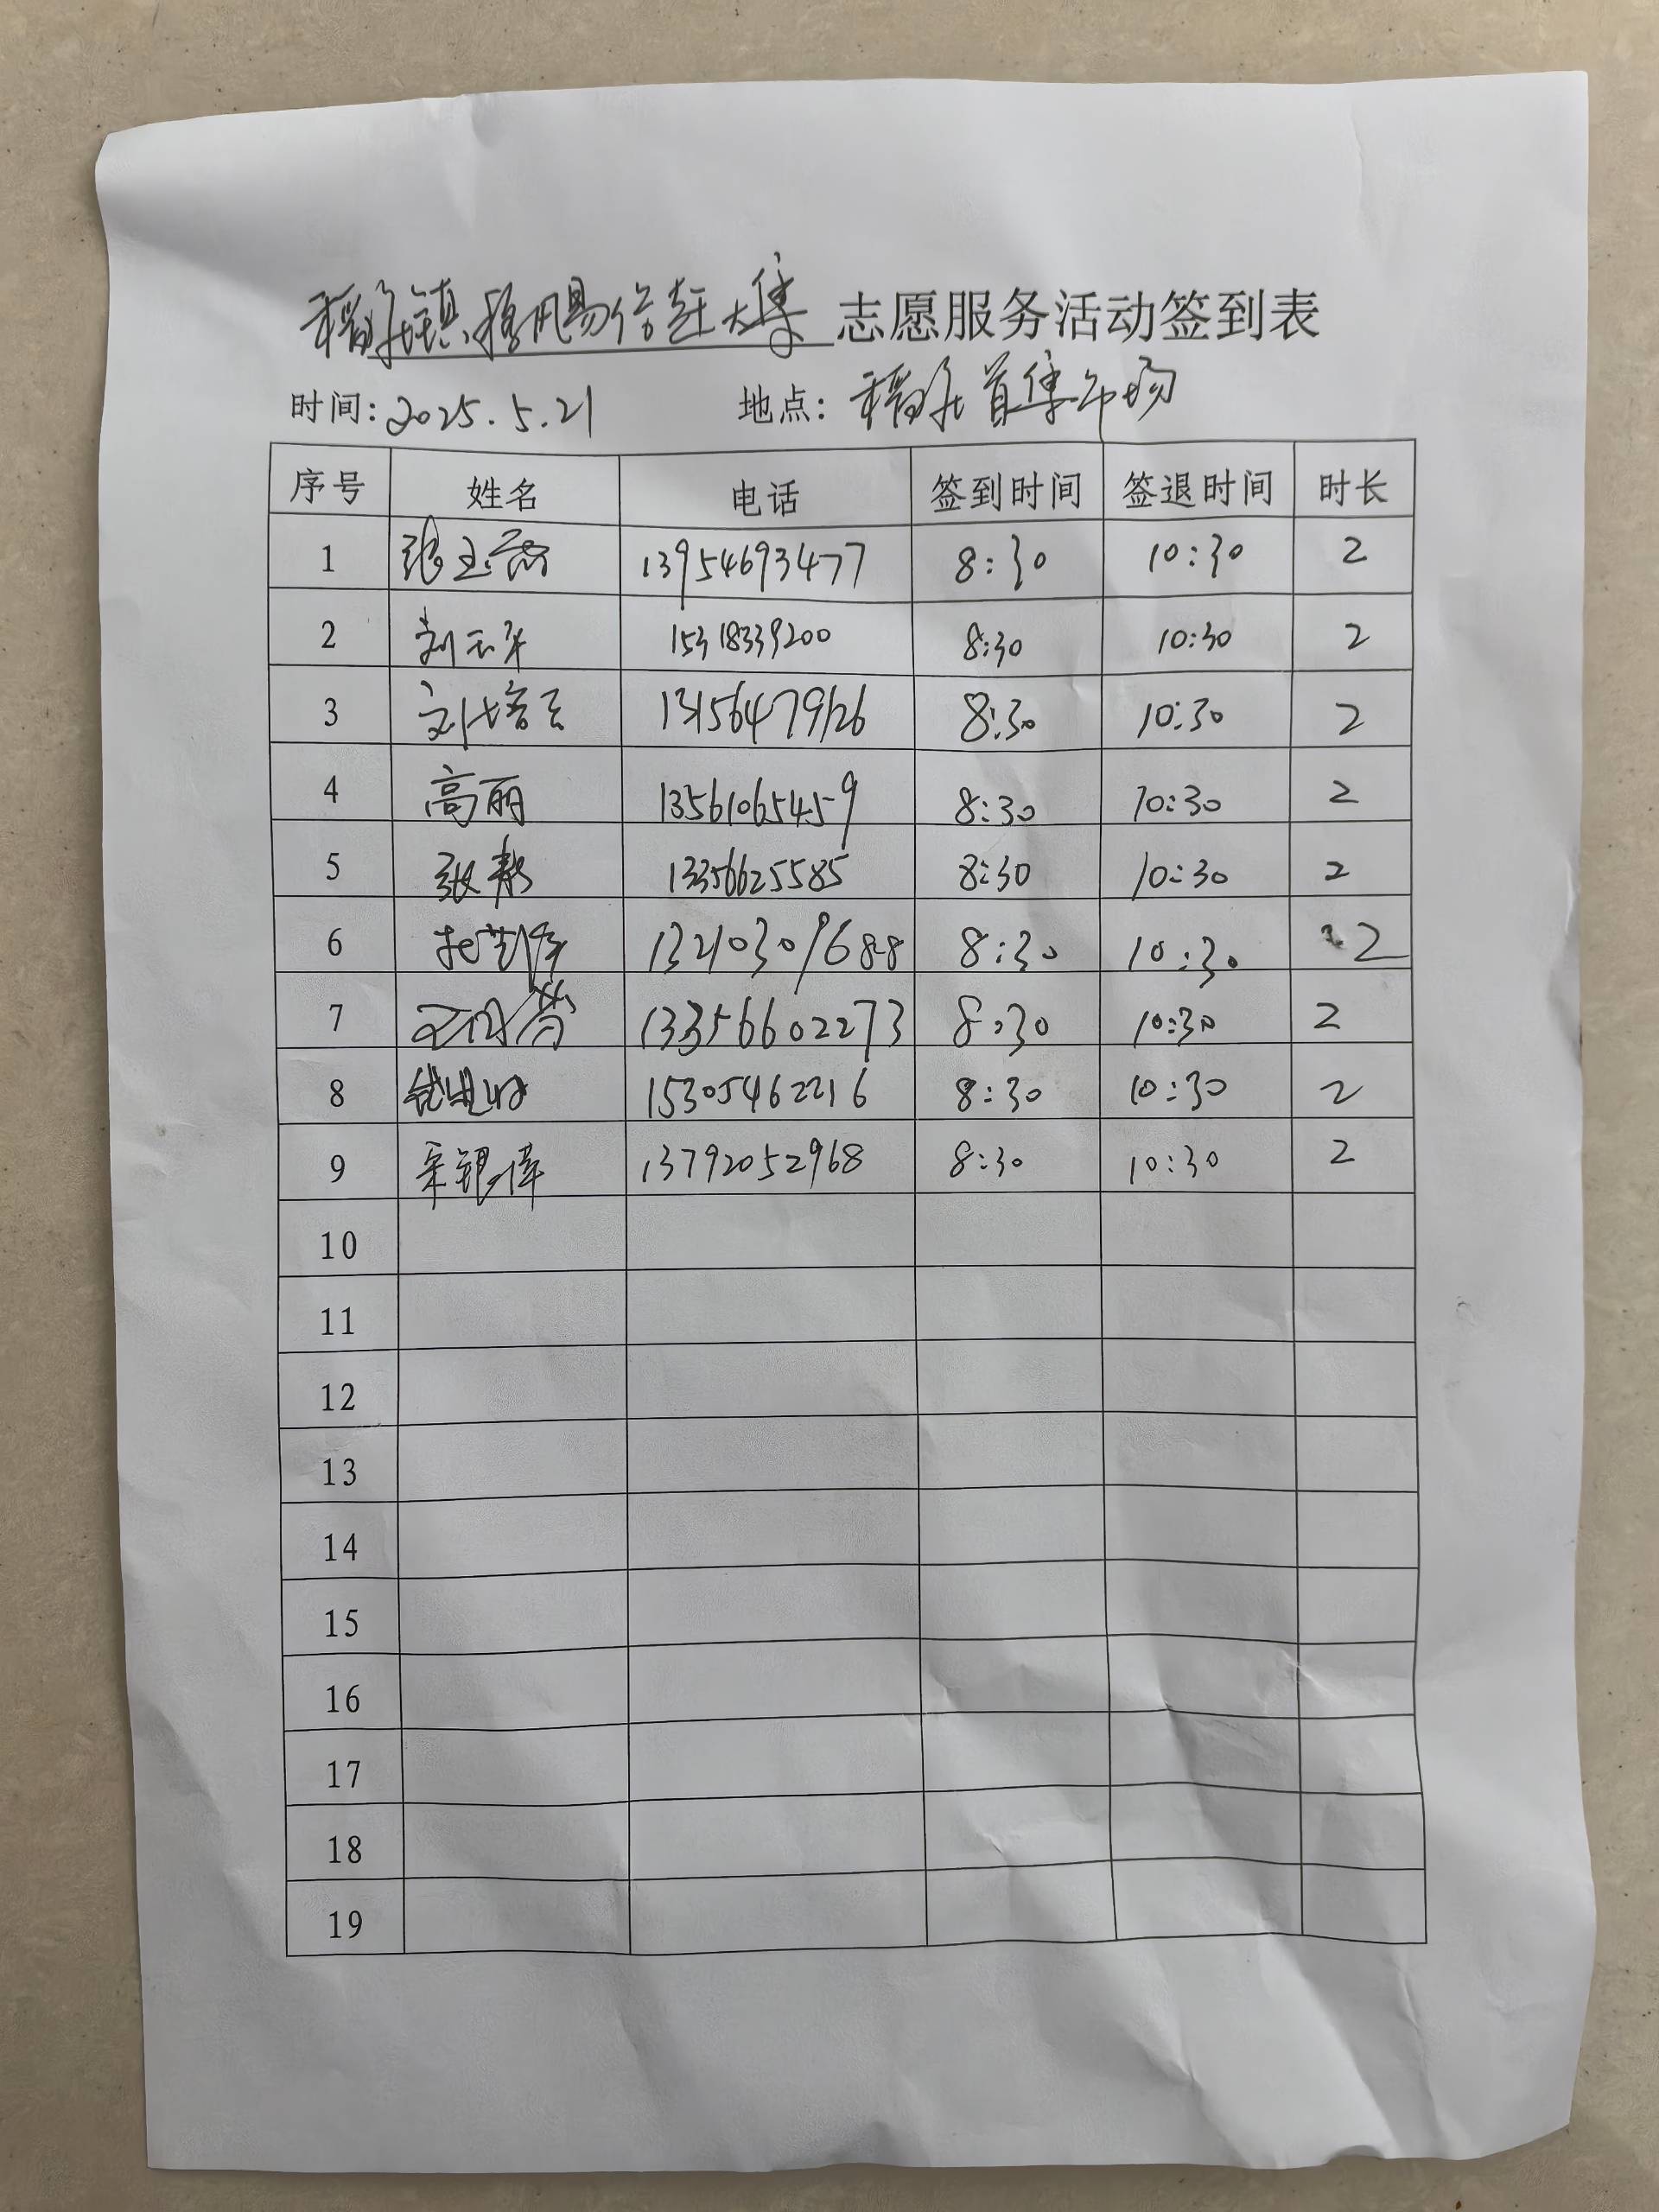 稻庄镇移风易俗赶大集志愿服务活动签到表
时间:2025.5.21 地点:稻庄首集市场
序号 姓名 电话 签到时间 签退时间 时长
1 13954693477 8:30 10:30 2
2 15318339200 8:30 10:30 2
3 刘培云 13156479126 8:30 10:30 2
4 高丽 13561065459 8:30 10:30 2
5 13356625585 8:30 10:30 2
6 13210309688 8:30 10:30 2
7 13356602273 8:30 10:30 2
8 15305462216 8:30 10:30 2
9 13792052968 8:30 10:30 2
10
11
12
13
14
15
16
17
18
19